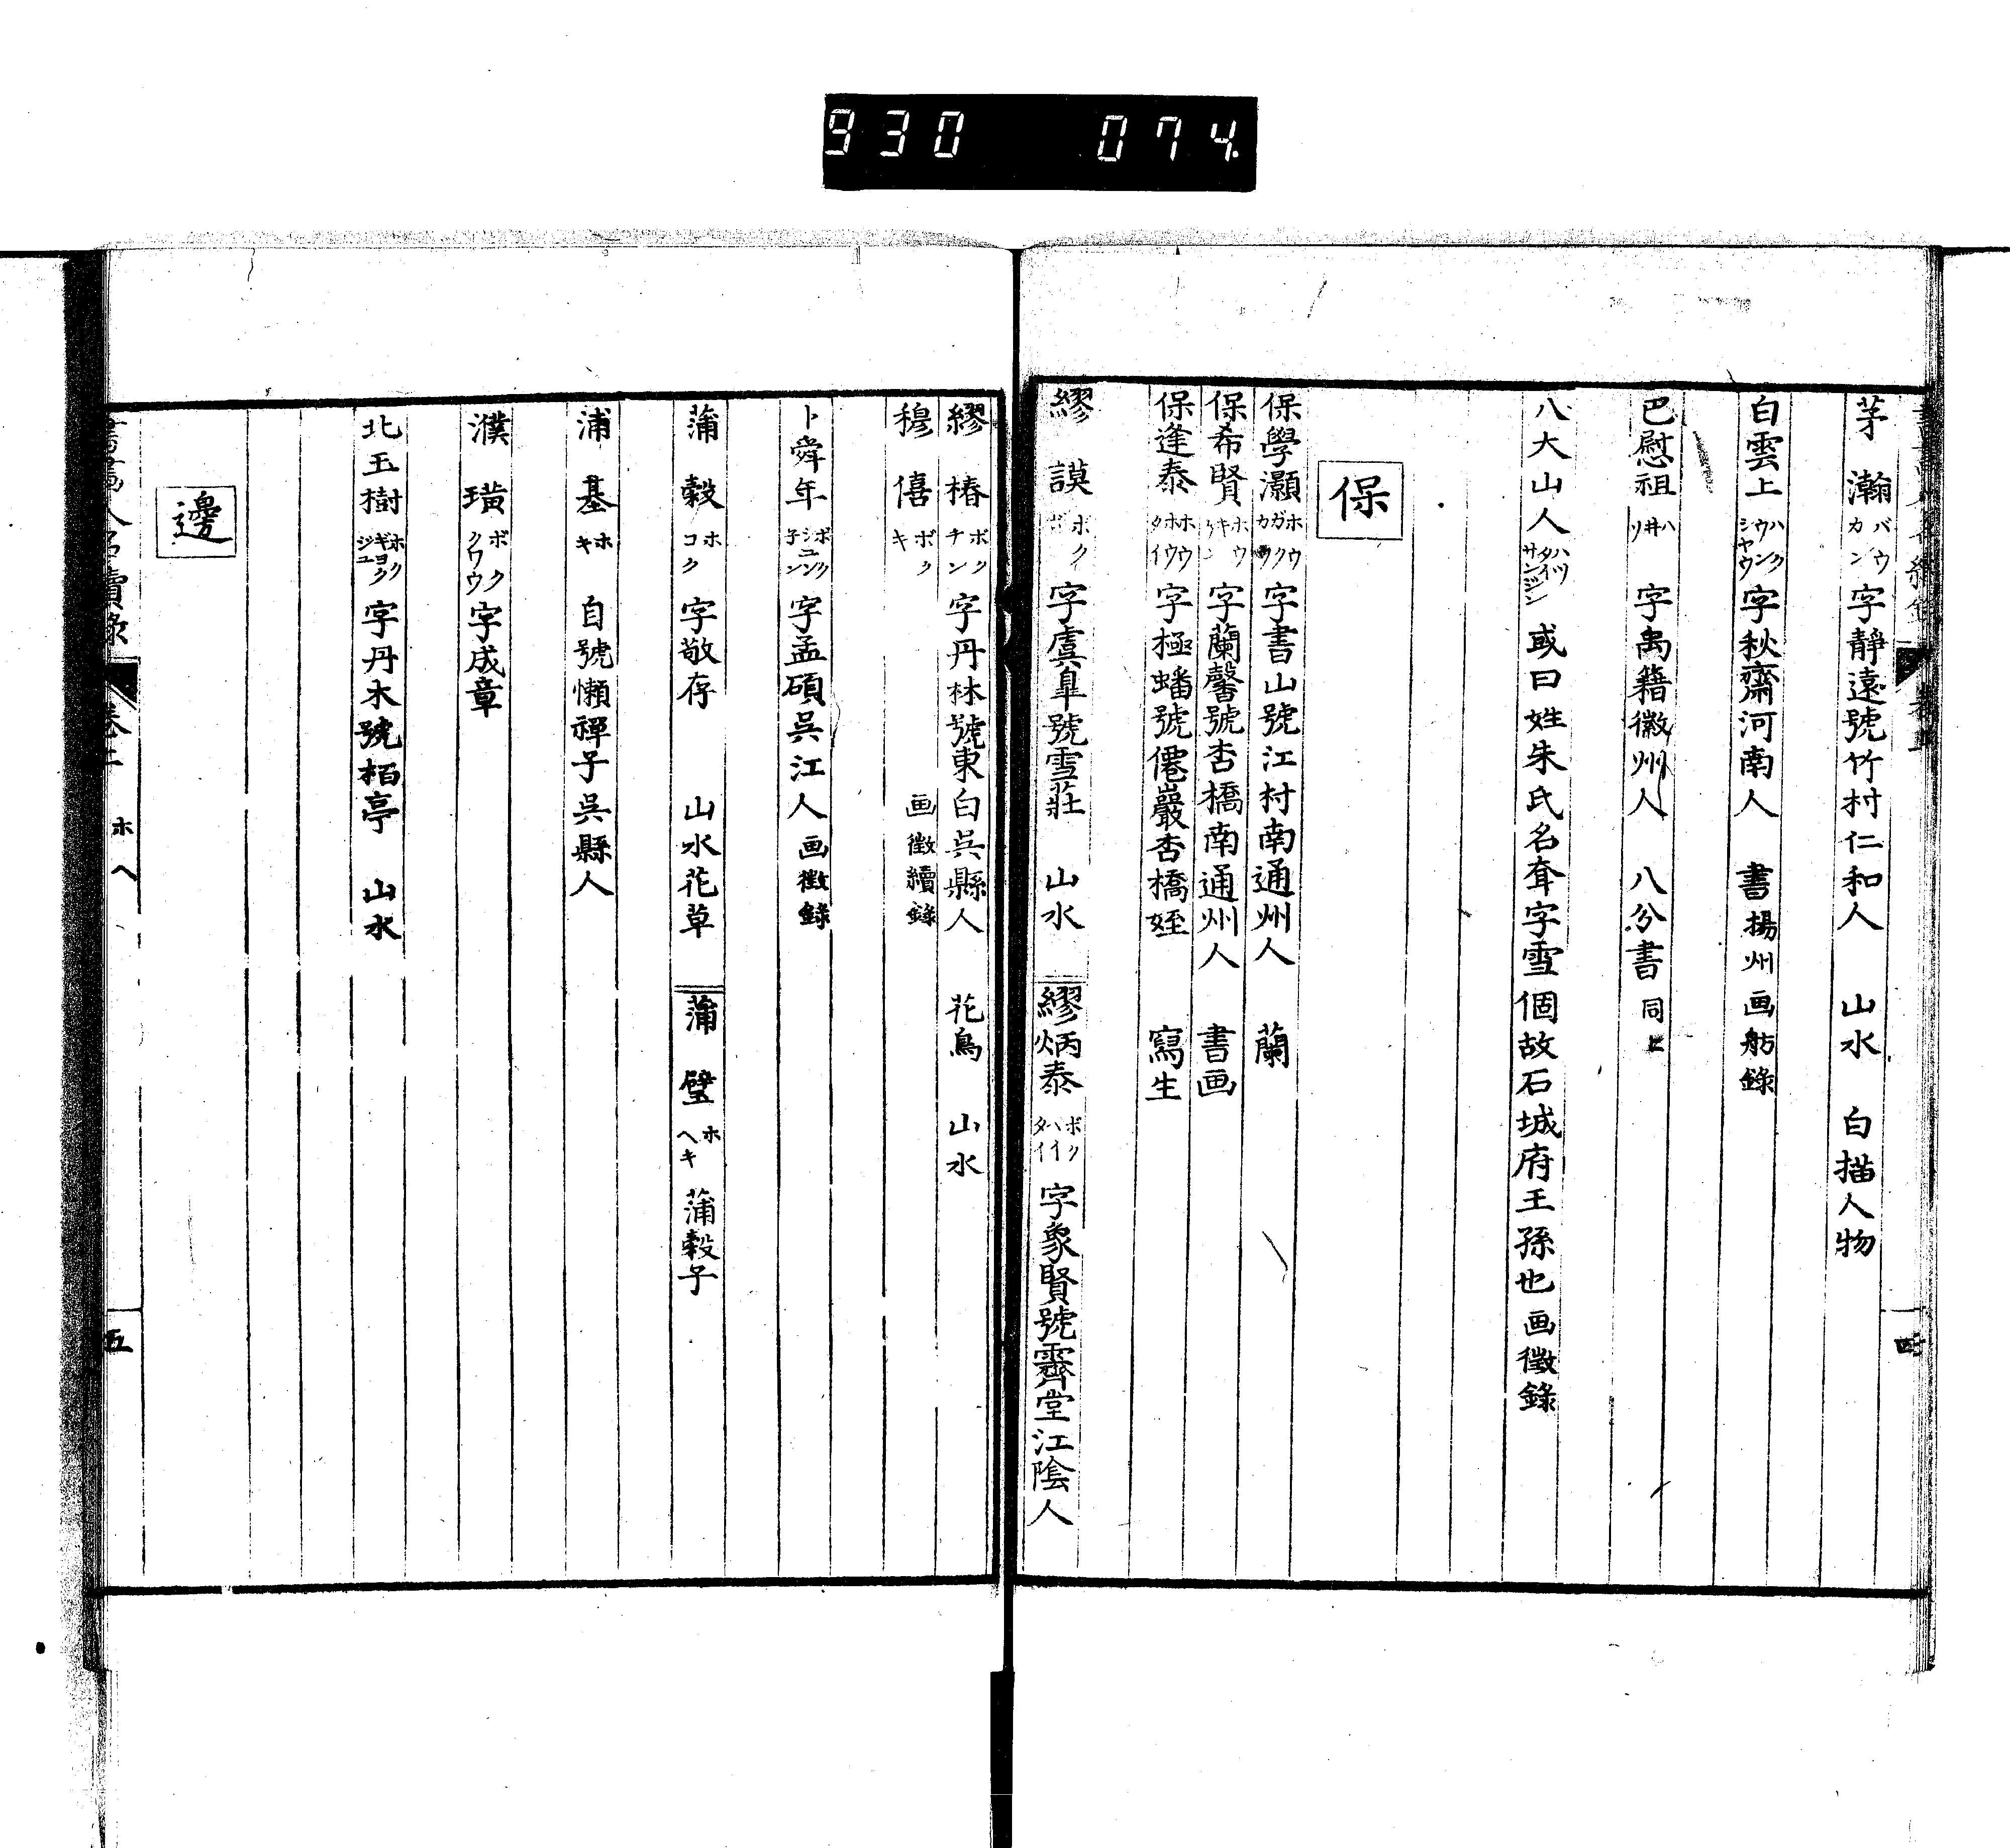 930 074.
茅瀚 バウカン 字靜遠號竹村仁和人 山水 白描人物
白雲上 ハクウンシヤウ 字秋齋河南人 書 揚州画舫錄
巴慰祖 ハ井ソ 字禹籍徽州人 八分書 同上
八大山人 ハツタイサンジン 或曰姓朱氏名耷字雪個故石城府王孫也 画徵錄
保
保學灝 ホウガクカウ 字書山號江村南通州人 蘭
保希賢 ホウキケン 字蘭馨號杏橋南通州人 書画
保逢泰 ホウホウタイ 字極蟠號僊巖杏橋姪 寫生
繆謨 ボクボ 字虞臯號雪莊 山水
繆炳泰 ボクハイタイ 字象賢號霽堂江陰人
四
繆椿 ボクチン 字丹林號東白吳縣人 花鳥 山水
穆僖 ボクキ 画徵續錄
卜舜年 ボクシユン子ン 字孟碩吳江人 画徵錄
蒲穀 ホコク 字敬存 山水花草
蒲璧 ホヘキ 蒲穀子
浦基 ホキ 自號懶禪子吳縣人
濮璜 ボククワウ 字成章
北玉樹 ホクギヨクジユ 字丹木號栢亭 山水
邊
書畵人名續錄 卷二 ホ ヘ 五